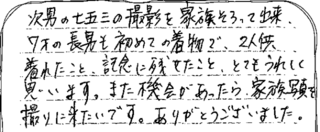 次男の七五三の撮影を家族そろって出来、
7才の長男も初めての着物で、2人供
着れたこと、記念に残せたこと、とてもうれしく
思います。また機会があったら、家族写真を
撮りに来たいです。ありがとうございました。